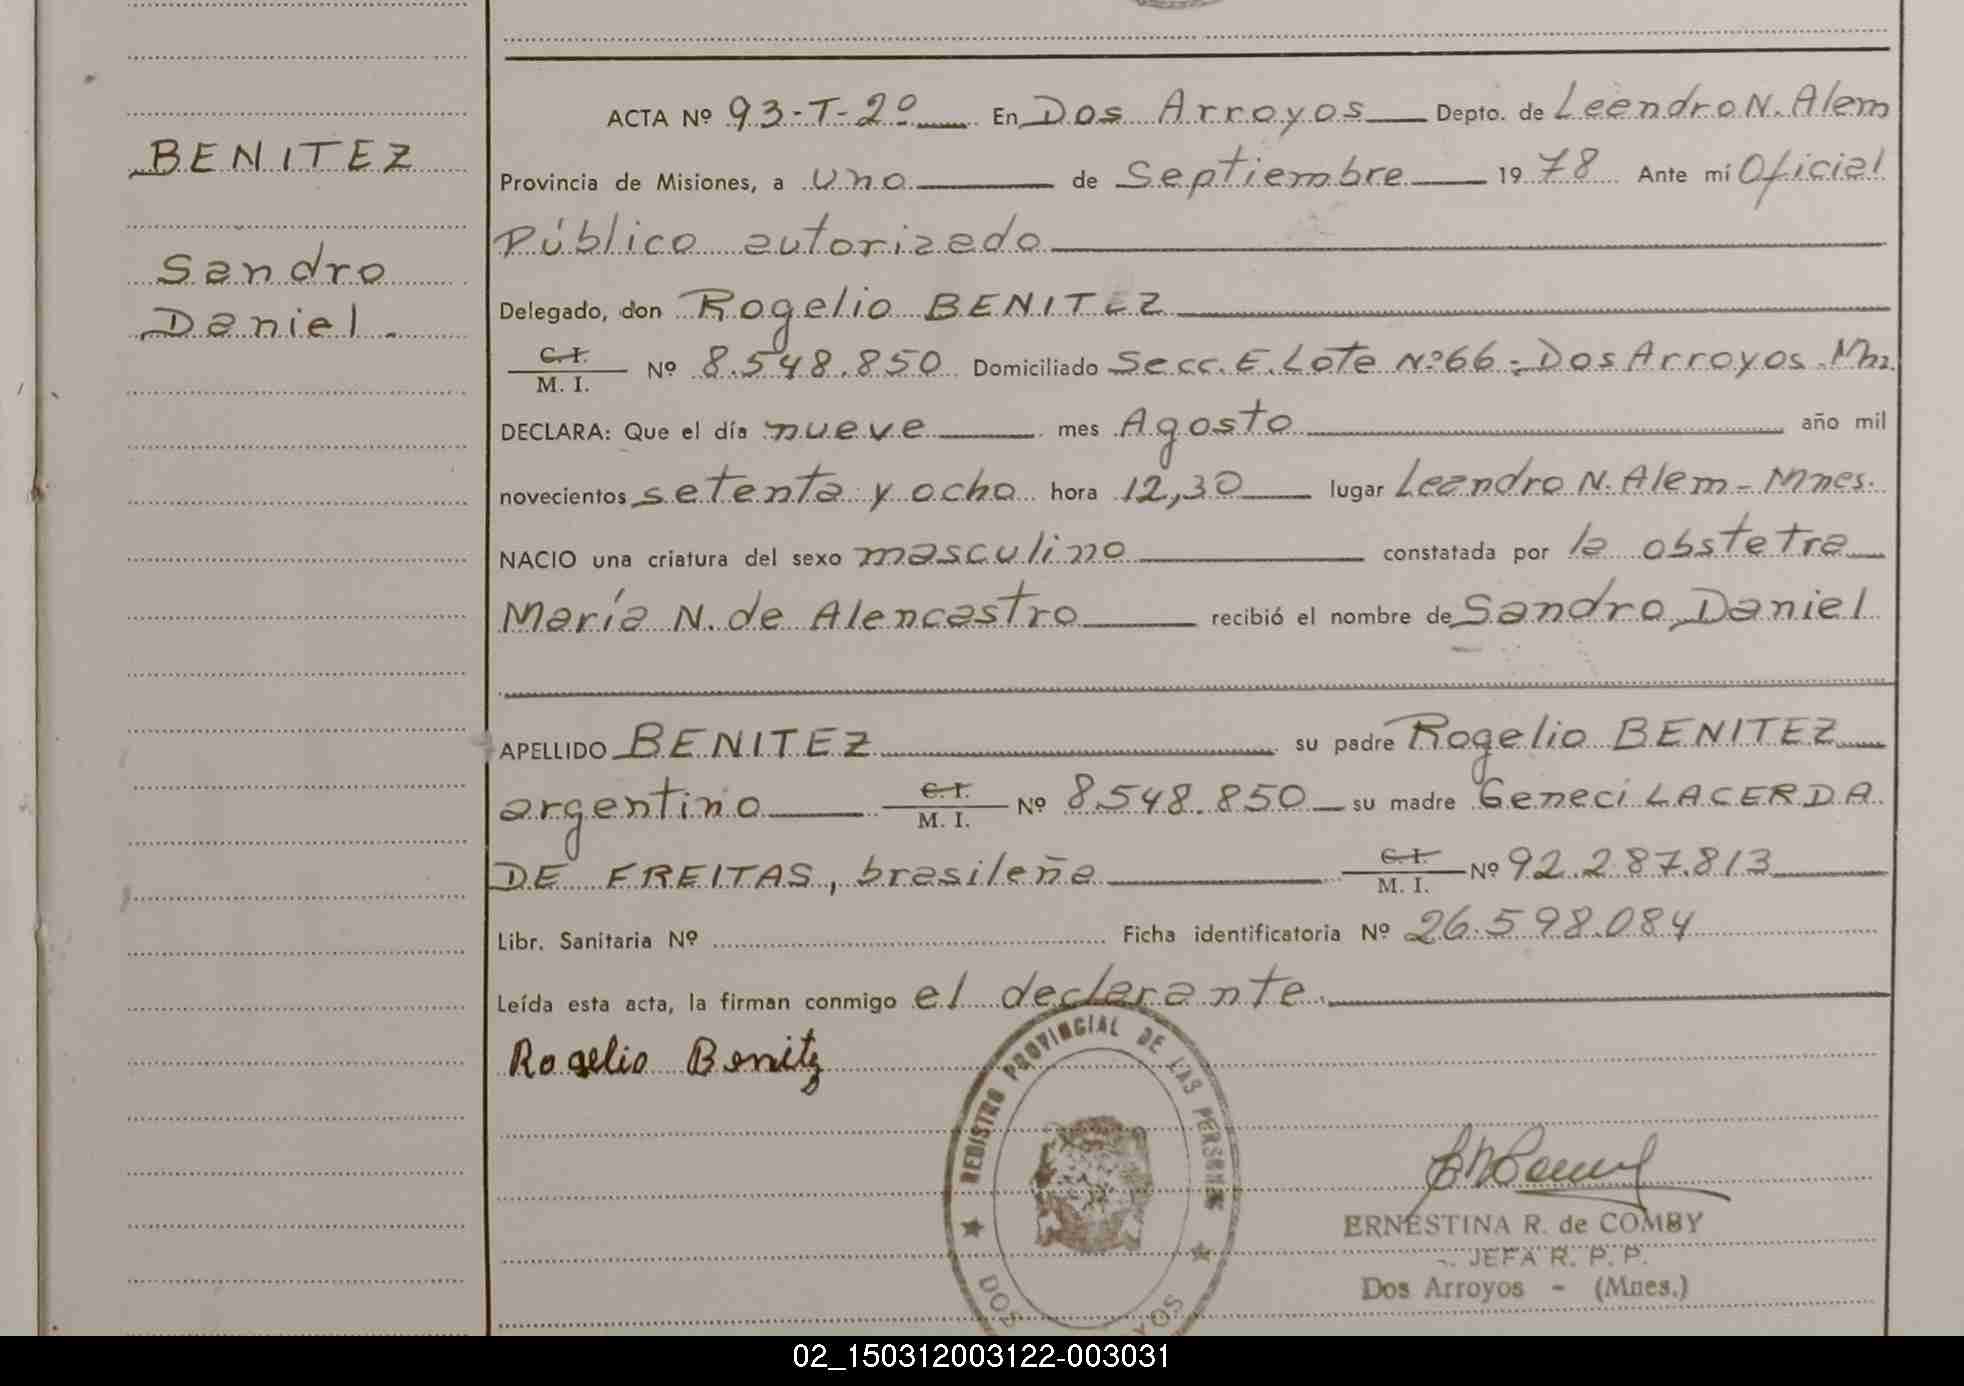 BENITEZ
Sandro
Daniel.
ACTA Nº 93-T-2º En Dos Arroyos Depto. de Leandro N. Alem
Provincia de Misiones, a uno de Septiembre 19 78 Ante mí Oficial
Público autorizado
Delegado, don Rogelio BENITEZ
C. I.
M. I. Nº 8.548.850 Domiciliado Secc. E. Lote Nº 66 - Dos Arroyos - Mnes.
DECLARA: Que el día nueve mes Agosto año mil
novecientos setenta y ocho hora 12,30 lugar Leandro N. Alem - Mnes.
NACIO una criatura del sexo masculino constatada por la obstetra
María N. de Alencastro recibió el nombre de Sandro Daniel
APELLIDO BENITEZ su padre Rogelio BENITEZ
argentino C. I. M. I. Nº 8.548.850 su madre Geneci LACERDA
DE FREITAS, brasileña C. I. M. I. Nº 92.287.813
Libr. Sanitaria Nº Ficha identificatoria Nº 26.598.084
Leída esta acta, la firman conmigo el declarante.
Rogelio Benitez
REGISTRO PROVINCIAL DE LAS PERSONAS
DOS ARROYOS
ERNESTINA R. de COMBY
JEFA R. P. P.
Dos Arroyos - (Mnes.)
02_150312003122-003031